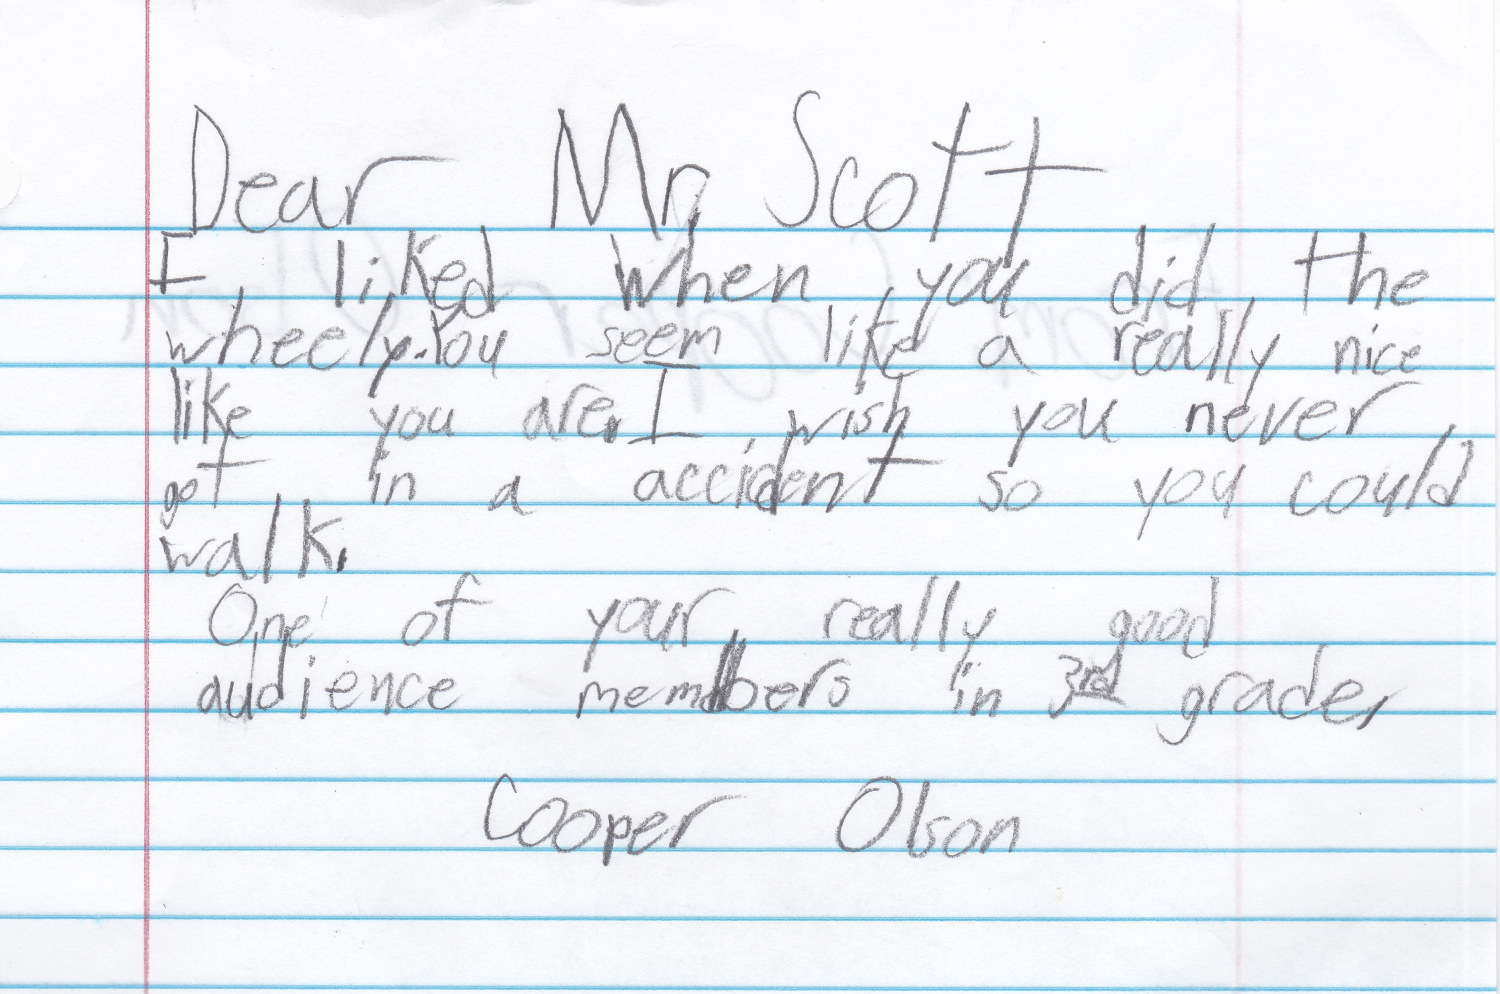 Dear Mr. Scott
I liked when you did the
wheely. You seem like a really nice
like you are. I wish you never
got in a accident so you could
walk.
One of your really good
audience members in 3rd grade,
Cooper Olson